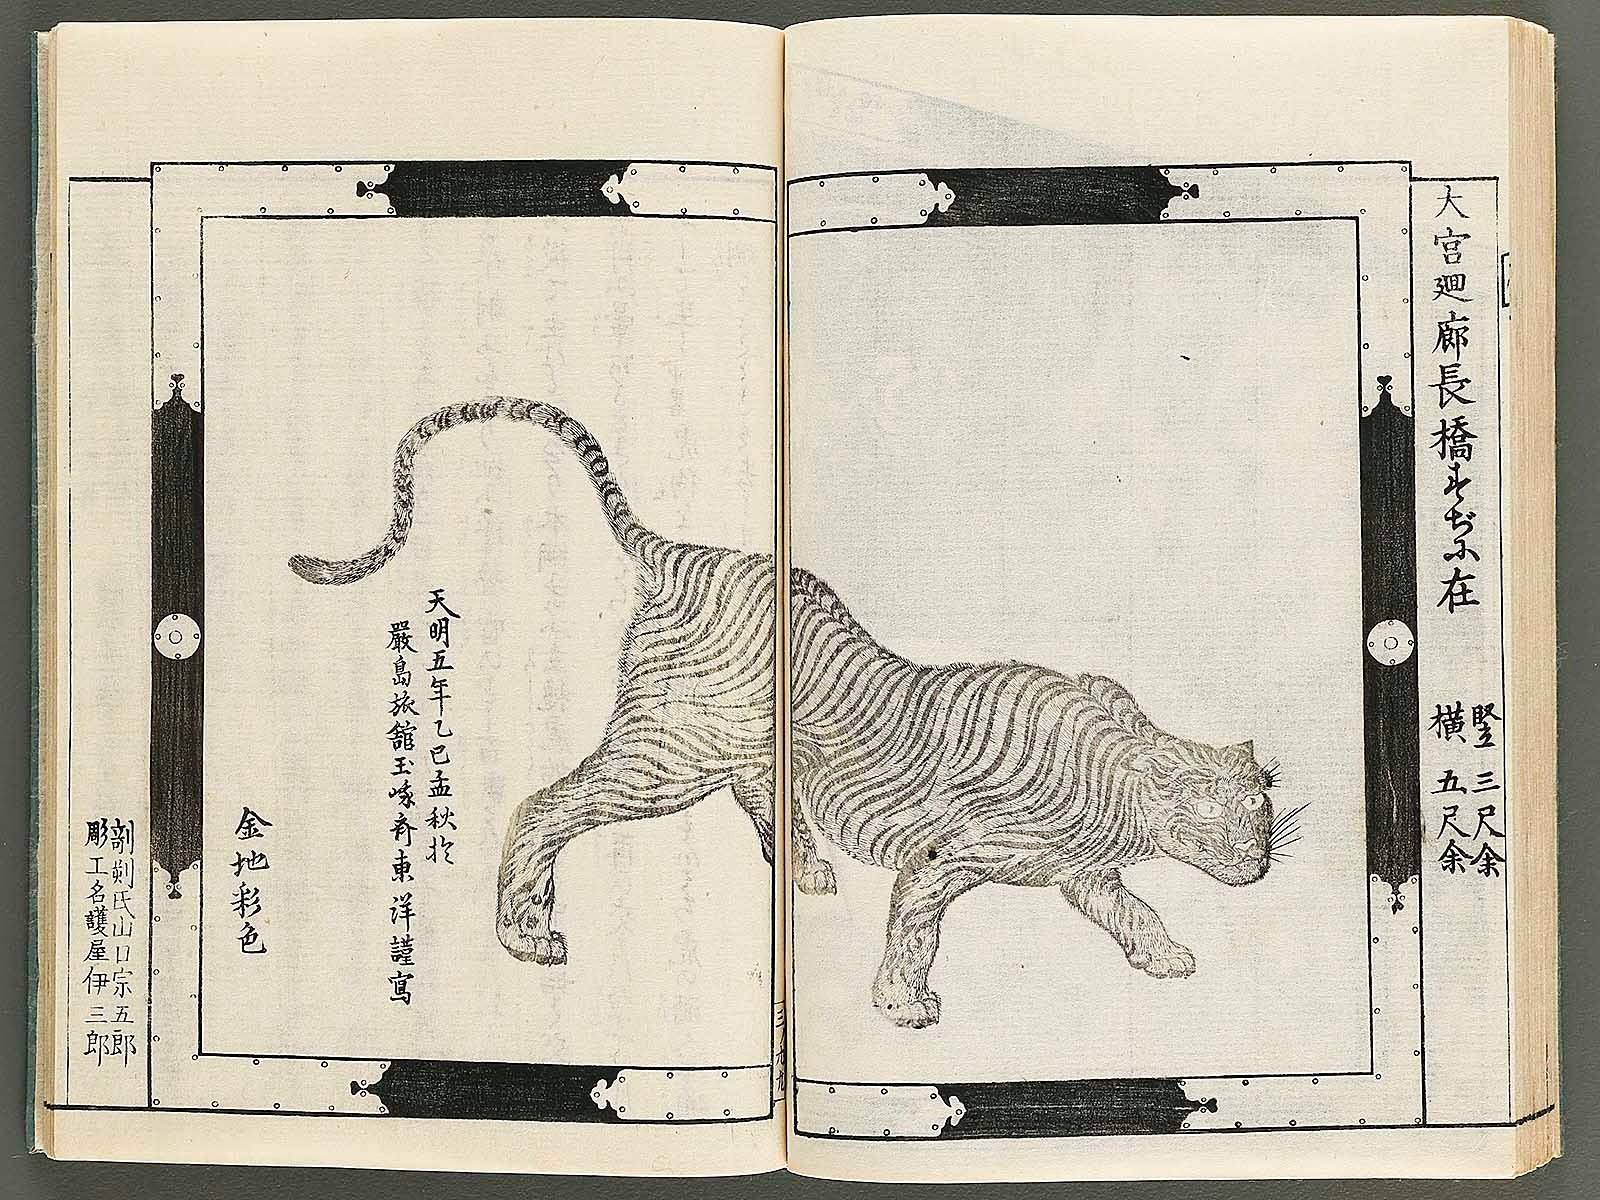 大宮廻廊長橋すぢに在
竪三尺余
横五尺余
天明五年乙巳孟秋於
嚴島旅舘玉峨斉東洋謹寫
金地彩色
剞劂氏山口宗五郎
彫工名護屋伊三郎